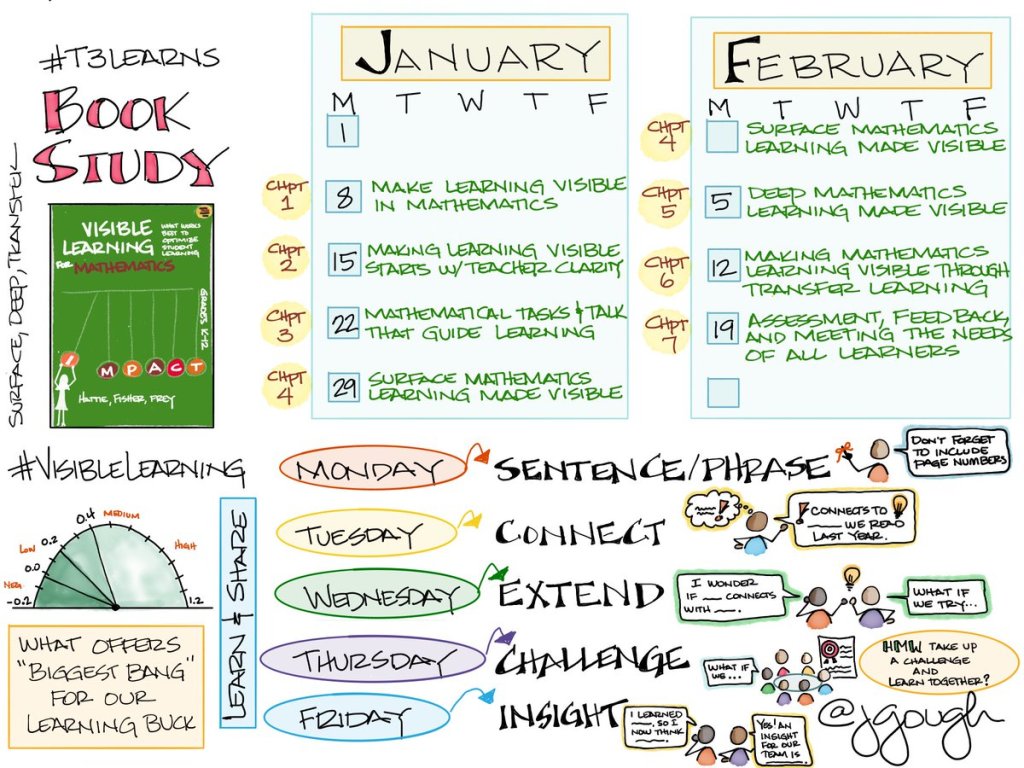 #T3LEARNS
BOOK
STUDY
SURFACE, DEEP, TRANSFER
VISIBLE
LEARNING
WHAT WORKS
BEST TO
OPTIMIZE
STUDENT
LEARNING
FOR MATHEMATICS
GRADES K-12
IMPACT
HATTIE, FISHER, FREY
JANUARY
M T W T F
1
CHPT
1
8
MAKE LEARNING VISIBLE
IN MATHEMATICS
CHPT
2
15
MAKING LEARNING VISIBLE
STARTS W/TEACHER CLARITY
CHPT
3
22
MATHEMATICAL TASKS & TALK
THAT GUIDE LEARNING
CHPT
4
29
SURFACE MATHEMATICS
LEARNING MADE VISIBLE
FEBRUARY
M T W T F
CHPT
4
SURFACE MATHEMATICS
LEARNING MADE VISIBLE
CHPT
5
5
DEEP MATHEMATICS
LEARNING MADE VISIBLE
CHPT
6
12
MAKING MATHEMATICS
LEARNING VISIBLE THROUGH
TRANSFER LEARNING
CHPT
7
19
ASSESSMENT, FEEDBACK,
AND MEETING THE NEEDS
OF ALL LEARNERS
#VISIBLELEARNING
NEG.
LOW
MEDIUM
HIGH
-0.2
0.0
0.2
0.4
1.2
WHAT OFFERS
"BIGGEST BANG"
FOR OUR
LEARNING BUCK
LEARN & SHARE
MONDAY
SENTENCE/PHRASE
DON'T FORGET
TO INCLUDE
PAGE NUMBERS
TUESDAY
CONNECT
!
! CONNECTS TO
___ WE READ
LAST YEAR.
WEDNESDAY
EXTEND
I WONDER
IF ___ CONNECTS
WITH ___.
WHAT IF
WE TRY...
THURSDAY
CHALLENGE
WHAT IF
WE ...
HMW TAKE UP
A CHALLENGE
AND
LEARN TOGETHER?
FRIDAY
INSIGHT
I LEARNED
___, SO I
NOW THINK
___
YES! AN
INSIGHT
FOR OUR
TEAM IS
___
@jgough